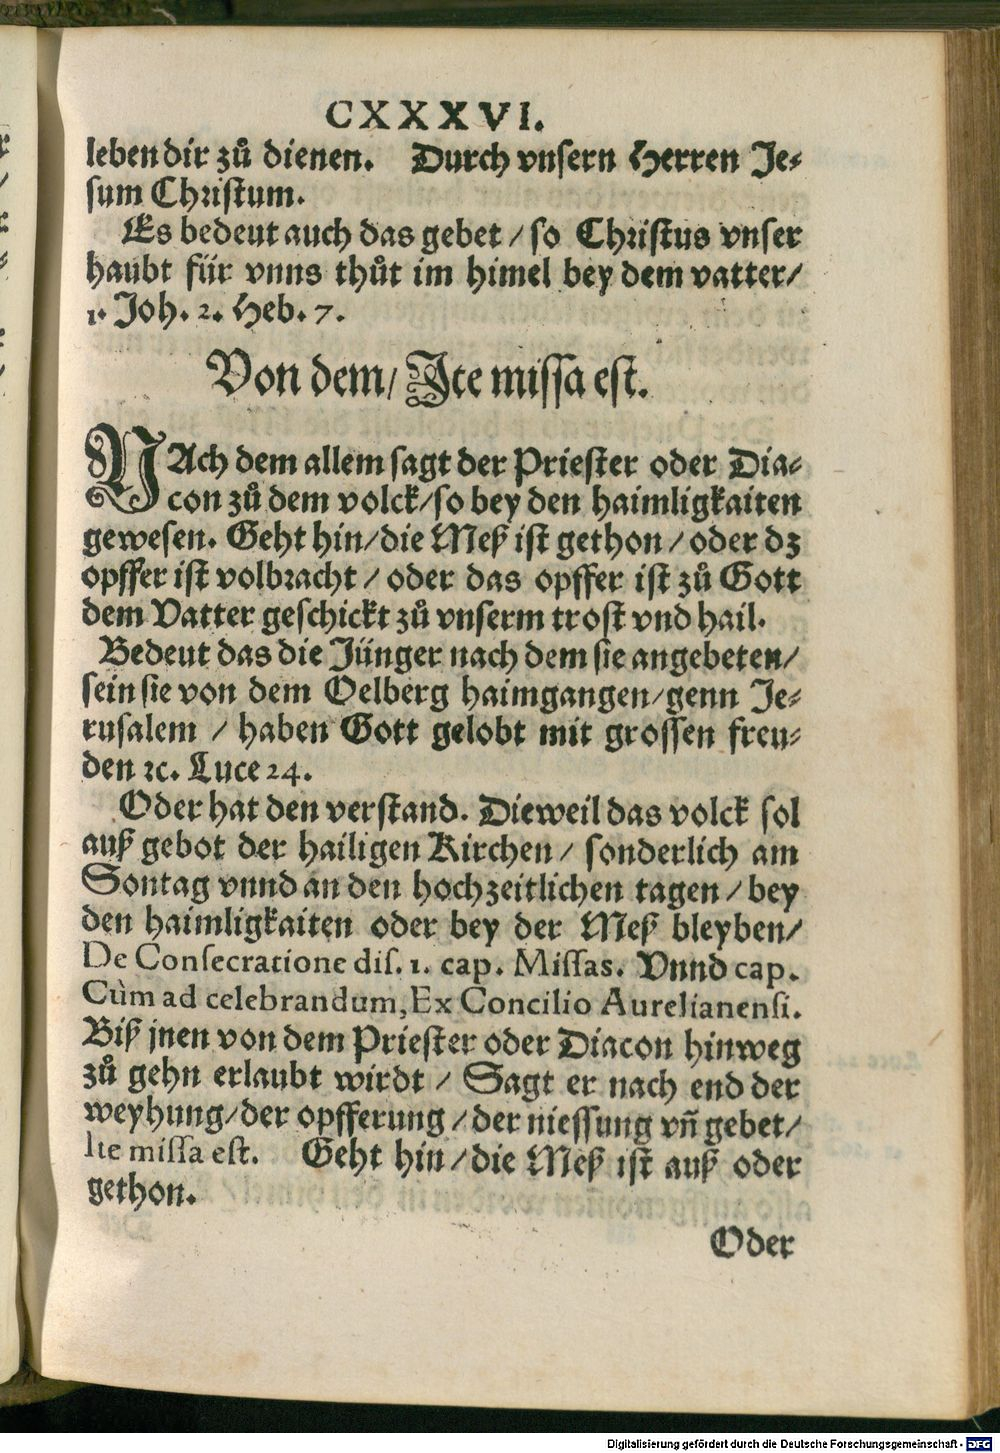 CXXXVI.
leben dir zů dienen. Durch vnsern Herren Je⸗
sum Christum.
Es bedeut auch das gebet / so Christus vnser
haubt für vnns thůt im himel bey dem vatter/
1. Joh. 2. Heb. 7.
Von dem/ Ite missa est.
NAch dem allem sagt der Priester oder Dia⸗
con zů dem volck/so bey den haimligkaiten
gewesen. Geht hin/die Meß ist gethon / oder dz
opffer ist volbracht / oder das opffer ist zů Gott
dem Vatter geschickt zů vnserm trost vnd hail.
Bedeut das die Jünger nach dem sie angebeten/
sein sie von dem Oelberg haimgangen/genn Je⸗
rusalem / haben Gott gelobt mit grossen freu⸗
den ꝛc. Luce 24.
Oder hat den verstand. Dieweil das volck sol
auß gebot der hailigen Kirchen / sonderlich am
Sontag vnnd an den hochzeitlichen tagen / bey
den haimligkaiten oder bey der Meß bleyben/
De Consecratione dis. 1. cap. Missas. Vnnd cap.
Cùm ad celebrandum, Ex Concilio Aurelianensi.
Biß jnen von dem Priester oder Diacon hinweg
zů gehn erlaubt wirdt / Sagt er nach end der
weyhung/der opfferung / der niessung vñ gebet/
Ite missa est. Geht hin / die Meß ist auß oder
gethon.
Oder
Digitalisierung gefördert durch die Deutsche Forschungsgemeinschaft - DFG